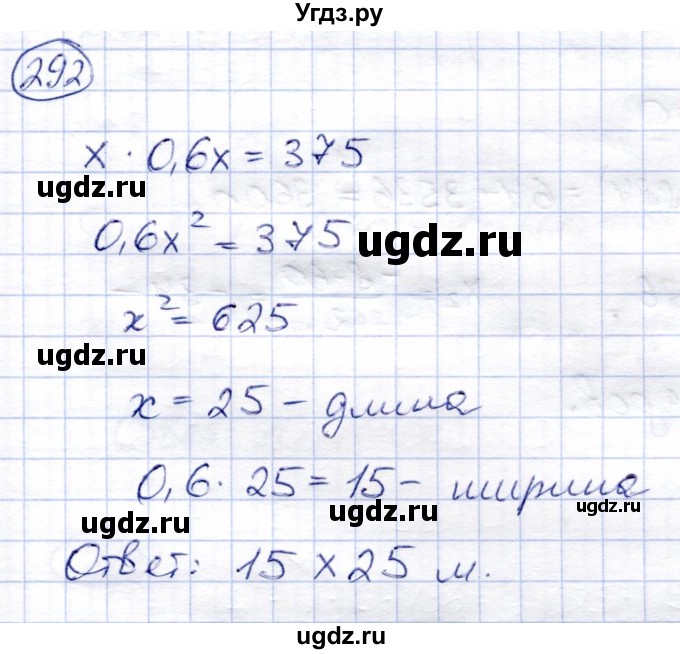 Угдз.ру
292
x · 0,6x = 375
ugdz.ru
0,6x² = 375
ugdz.ru
x² = 625
ugdz.ru
x = 25 – длина
0,6 · 25 = 15 – ширина
ugdz.ru ugdz.ru ugdz.ru
Ответ: 15 x 25 м.
ugdz.ru